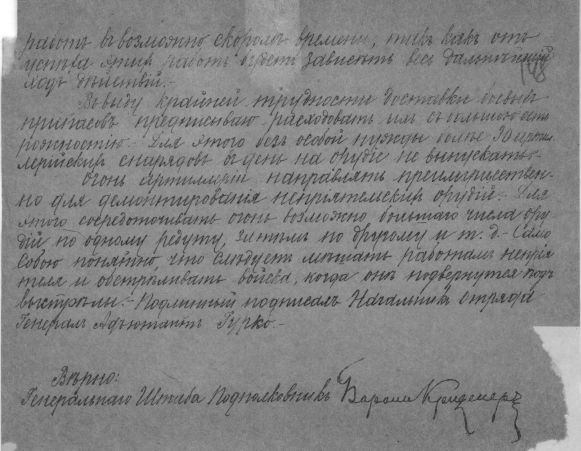 работъ въ возможно скоромъ времени, такъ какъ отъ
успѣха этихъ работъ будетъ зависѣть весь дальнѣйшій
ходъ дѣйствій.-
Въ виду крайней трудности доставки боевыхъ
припасовъ предписываю расходовать ихъ съ большою осто
рожностью. Для этого безъ особой нужды болѣе 30 артил
лерійскихъ снарядовъ въ день на орудіе не выпускать.-
Огонь Артиллеріи направлять преимуществен-
но для демонтированія непріятельскихъ орудій. Для
этого сосредоточивать огонь возможно большаго числа ору
дій по одному редуту, затѣмъ по другому и т. д.- Само
собою понятно что слѣдуетъ мѣшать работамъ непрія
теля и обстрѣливать войска, когда онѣ подвернутся подъ
выстрѣлы.- Подлинный подписалъ Начальникъ отряда
Генералъ Адъютантъ Гурко.-
Вѣрно:
Генеральнаго Штаба Подполковникъ Баронъ Криденеръ